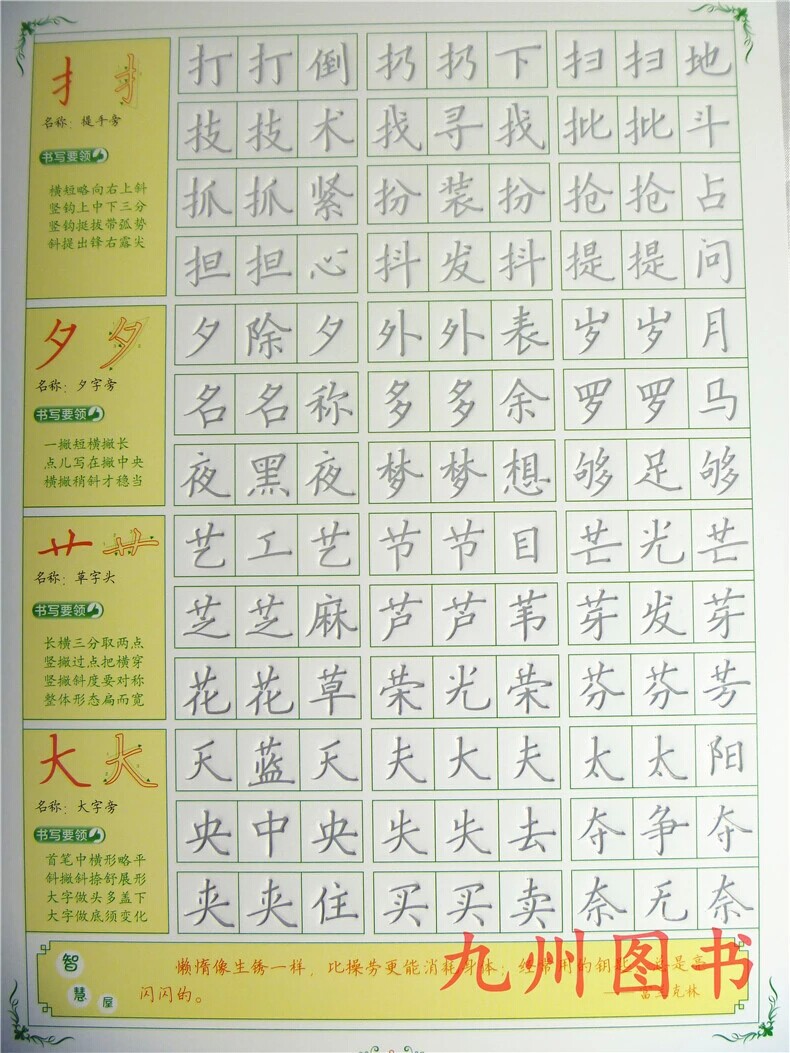 扌 扌
名称：提手旁
书写要领
横短略向右上斜
竖钩上中下三分
竖钩挺拔带弧势
斜提出锋右露尖
打 打 倒 扔 扔 下 扫 扫 地
技 技 术 找 寻 找 批 批 斗
抓 抓 紧 扮 装 扮 抢 抢 占
担 担 心 抖 发 抖 提 提 问
夕 夕
名称：夕字旁
书写要领
一撇短横撇长
点儿写在撇中央
横撇稍斜才稳当
夕 除 夕 外 外 表 岁 岁 月
名 名 称 多 多 余 罗 罗 马
夜 黑 夜 梦 梦 想 够 足 够
艹 艹
名称：草字头
书写要领
长横三分取两点
竖撇过点把横穿
竖撇斜度要对称
整体形态扁而宽
艺 工 艺 节 节 目 芒 光 芒
芝 芝 麻 芦 芦 苇 芽 发 芽
花 花 草 荣 光 荣 芬 芬 芳
大 大
名称：大字旁
书写要领
首笔中横形略平
斜撇斜捺舒展形
大字做头多盖下
大字做底须变化
天 蓝 天 夫 大 夫 太 太 阳
央 中 央 失 失 去 夺 争 夺
夹 夹 住 买 买 卖 奈 无 奈
智慧屋
懒惰像生锈一样，比操劳更能消耗身体；经常用的钥匙 是亮
闪闪的。
——富兰克林
九州图书